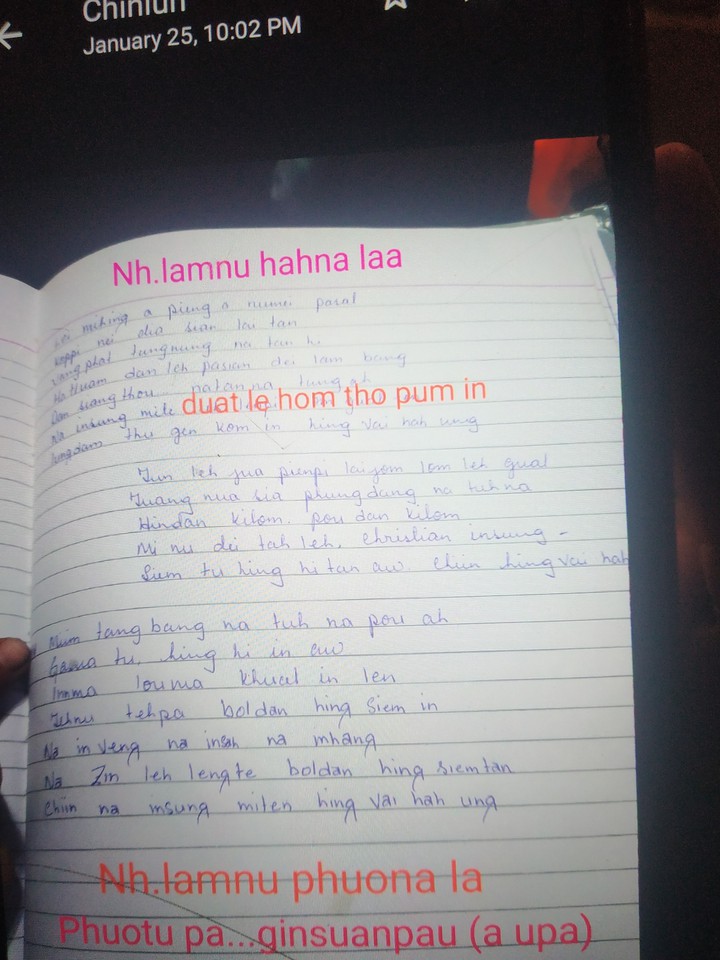 Chinlun
January 25, 10:02 PM
Nh.lamnu hahna laa
mihing a pieng a numei pasal
koppi nei dia sian lou tan
vangphat tungnung na tan hi
Ha thuam dan leh pasian dei lam bang
Dan siangthou natanna tung ah
Na insung mite
duat le hom tho pum in
lungdam thu gen kom in hing vai hah ung
Tun leh zua pienpi laizom lom leh gual
Tuang nua sia phungdang na tuh na
Hindan kilom. pou dan kilom
Mi nu dei tah leh, christian insung -
Siem tu hing hi tan aw. chiin hing vai hah
Mum tang bang na tuh na pou ah
tu, hing hi in aw
Innma louma khual in len
Tehnu tehpa boldan hing siem in
Na in veng na insah na mhang
Na Zin leh lengte boldan hing siemtan
chiin na insung miten hing vai hah ung
Nh.lamnu phuona la
Phuotu pa...ginsuanpau (a upa)